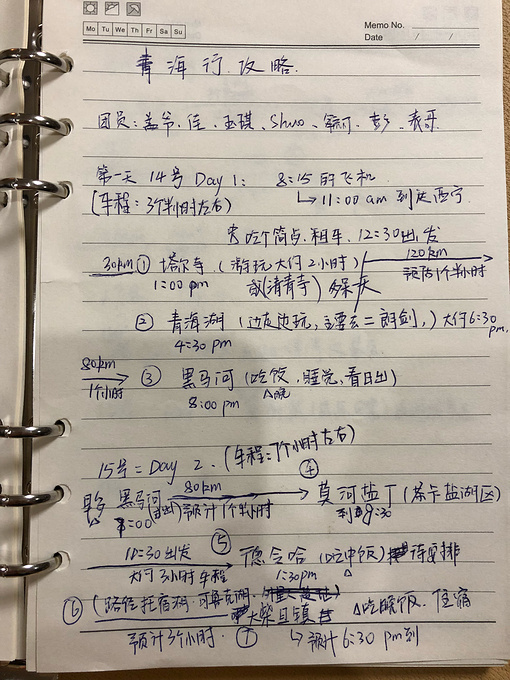 Mo Tu We Th Fr Sa Su
Memo No.
Date / /
青海行攻略.
团员: 盖爷. 佳. 玉琪、Shuo、 彭、表哥.
第一天 14号 Day 1: 8:15 的飞机
(车程: 3个半小时左右) 11:00 am 到达西宁.
吃个简点. 租车. 12:30出发
30km ① 塔尔寺 (游玩大约2小时) 120km
1:00 pm 或(清青寺) 预估1个半小时
② 青海湖 (边走边玩, 主要去二郎剑,) 大约6:30 pm.
4:30 pm
80km
1个小时 ③ 黑马河 (吃饭, 睡觉, 看日出)
8:00 pm 晚
15号 = Day 2. (车程: 7个小时左右)
黑马河 80km ④ 莫河盐丁 (茶卡盐湖区)
8:00出发) 预计1个半小时 到9:30
10:30出发 ⑤ 德令哈 (吃中饭) 待安排
大约3小时车程 1:30pm
⑥ (路径托宿湖. 可鲁克湖. 大柴旦镇 吃晚饭. 住宿
预计3个小时. 预计 6:30 pm到